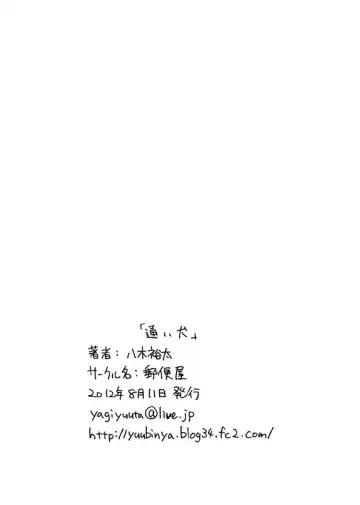 「通い犬」
著者：八木裕太
サークル名：郵便屋
2012年8月11日 発行
yagiyuuta@live.jp
http://yuubinya.blog34.fc2.com/